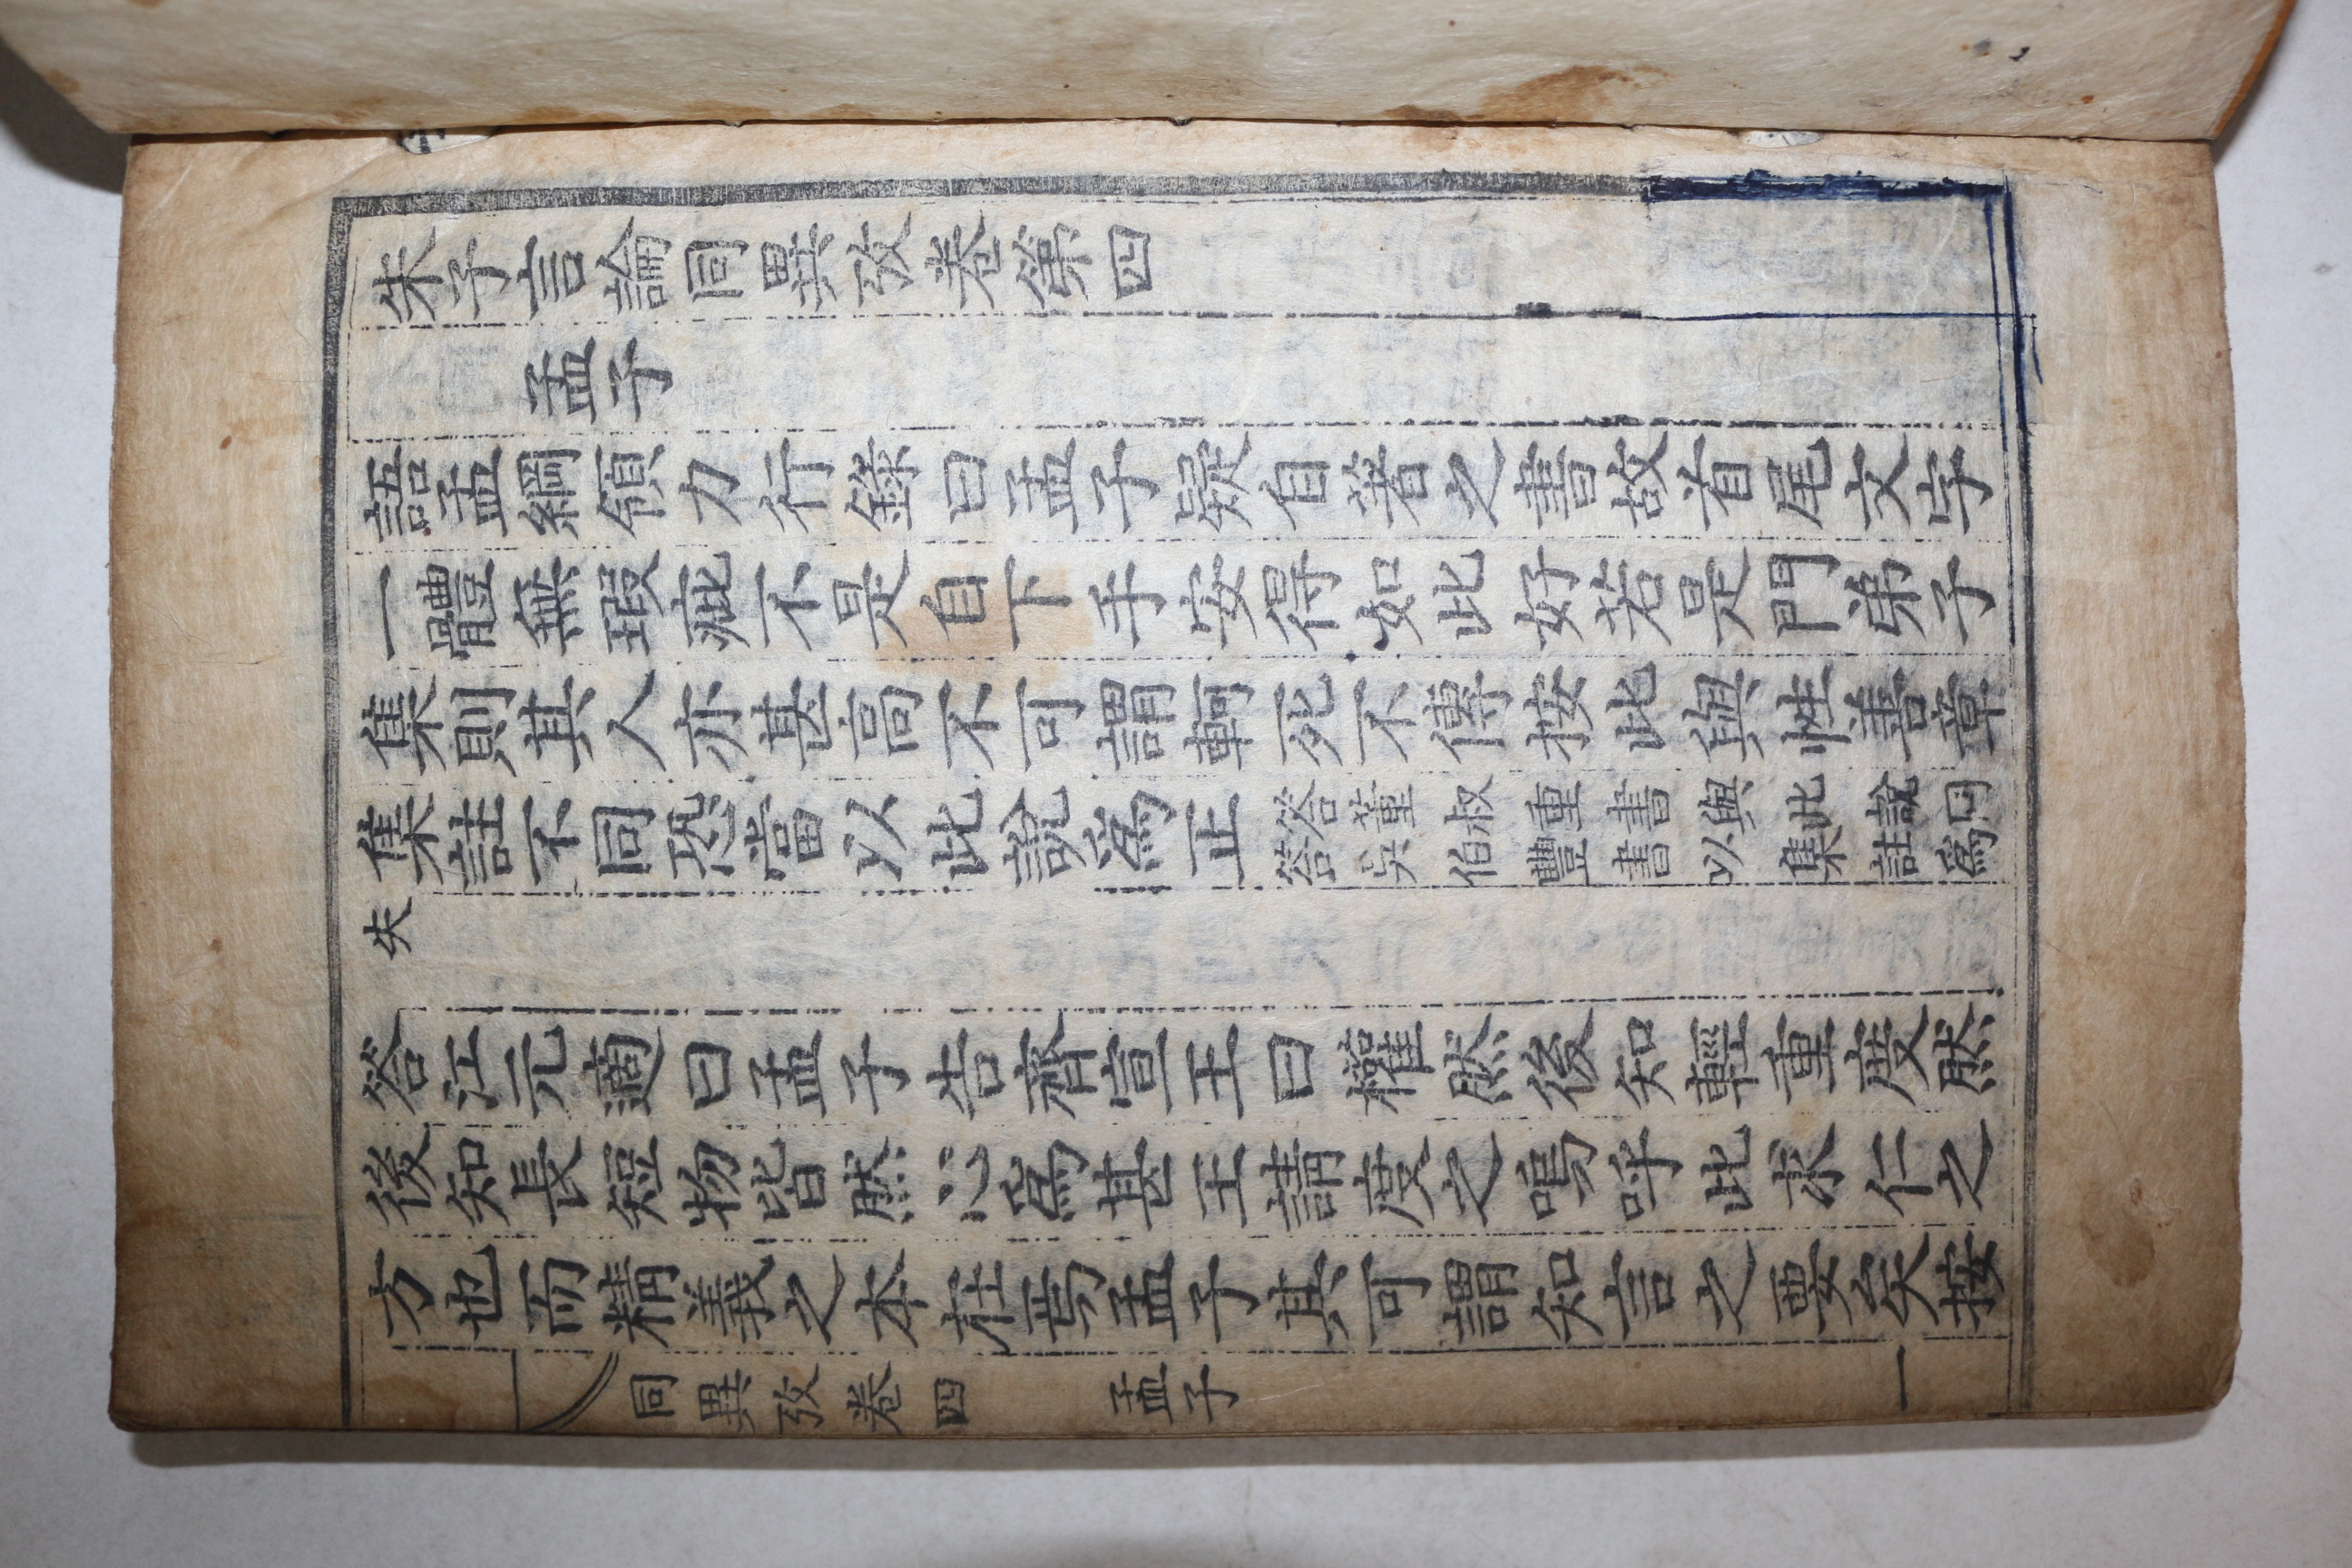 朱子言論同異攷卷第四
孟子
語孟綱領力行錄曰孟子疑自著之書故首尾文字
一體無瑕疵不是自下手安得如此好若是門弟子
集則其人亦甚高不可謂軻死不傳按此與性善章
集註不同恐當以此說爲正答董叔重書與此說同答吳伯豐書以集註爲
失
答江元適曰孟子告齊宣王曰權然後知輕重度然
後知長短物皆然心爲甚王請度之嗚呼此求仁之
方也而精義之本在焉孟子其可謂知言之要矣按
同異攷卷四 孟子 一